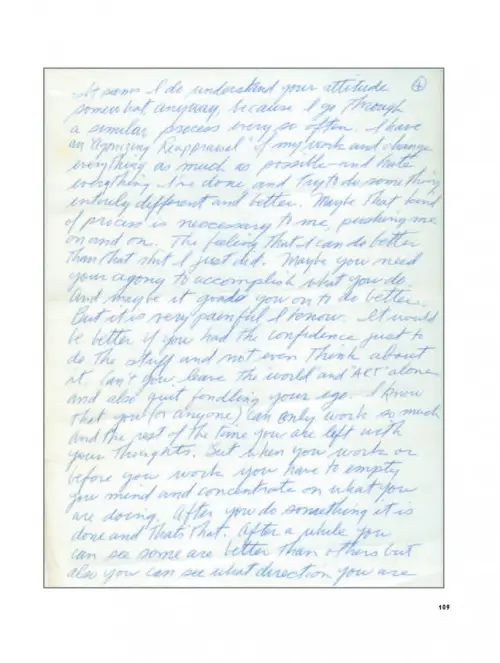 It seems I do understand your attitude
④
somewhat, anyway, because I go through
a similar process every so often. I have
an "Agonizing Reappraisal" of my work and change
everything as much as possible—and hate
everything I've done, and try to do something
entirely different and better. Maybe that kind
of process is necessary to me, pushing me
on and on. The feeling that I can do better
than that shit I just did. Maybe you need
your agony to accomplish what you do.
And maybe it goads you on to do better.
But it is very painful I know. It would
be better if you had the confidence just to
do the stuff and not even think about
it. Can't you leave the "world" and "ART" alone
and also quit fondling your ego. I know
that you (or anyone) can only work so much
and the rest of the time you are left with
your thoughts. But when you work or
before you work you have to empty
you mind and concentrate on what you
are doing. After you do something it is
done and that's that. After a while you
can see some are better than others but
also you can see what direction you are
109